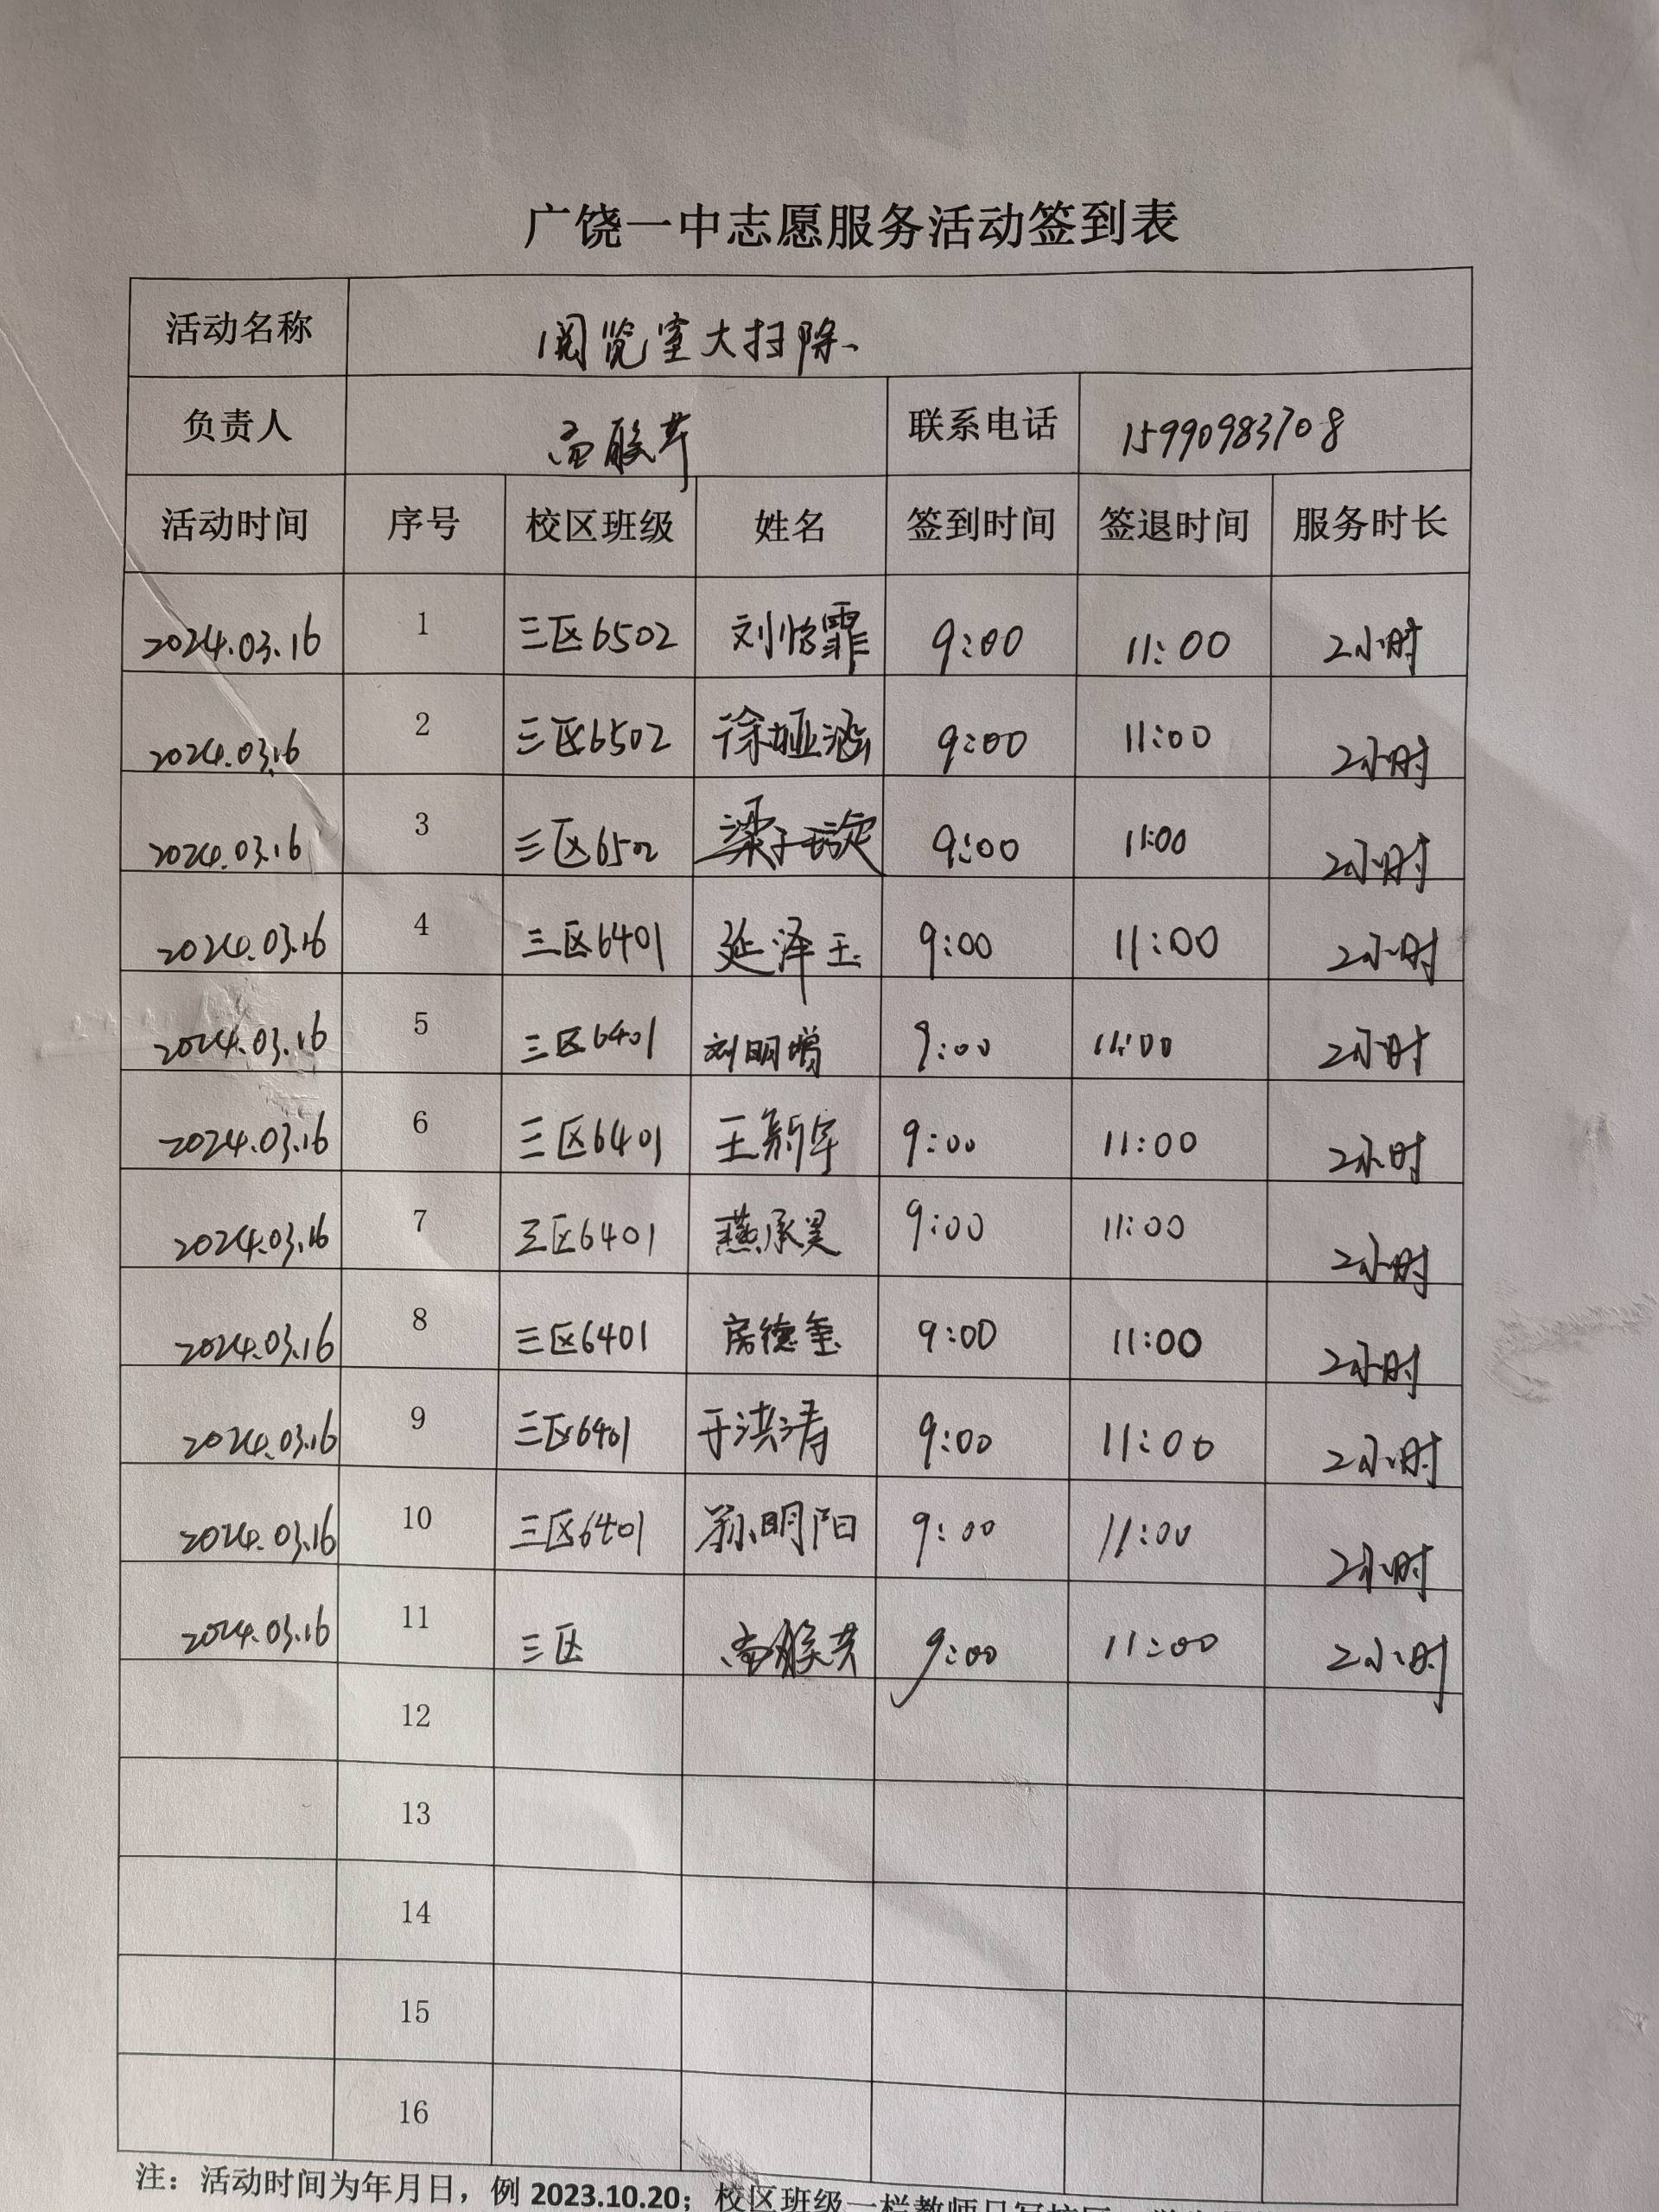 广饶一中志愿服务活动签到表
活动名称 阅览室大扫除
负责人 联系电话 15990983708
活动时间 序号 校区班级 姓名 签到时间 签退时间 服务时长
2024.03.16 1 三区6502 刘怡霏 9:00 11:00 2小时
2024.03.16 2 三区6502 徐娅涵 9:00 11:00 2小时
2024.03.16 3 三区6502 梁子璇 9:00 11:00 2小时
2024.03.16 4 三区6401 延泽玉 9:00 11:00 2小时
2024.03.16 5 三区6401 刘明增 9:00 11:00 2小时
2024.03.16 6 三区6401 王新宇 9:00 11:00 2小时
2024.03.16 7 三区6401 燕承昊 9:00 11:00 2小时
2024.03.16 8 三区6401 房德玺 9:00 11:00 2小时
2024.03.16 9 三区6401 于洪涛 9:00 11:00 2小时
2024.03.16 10 三区6401 孙明阳 9:00 11:00 2小时
2024.03.16 11 三区 9:00 11:00 2小时
12
13
14
15
16
注：活动时间为年月日，例 2023.10.20；校区班级一栏教师只写校区